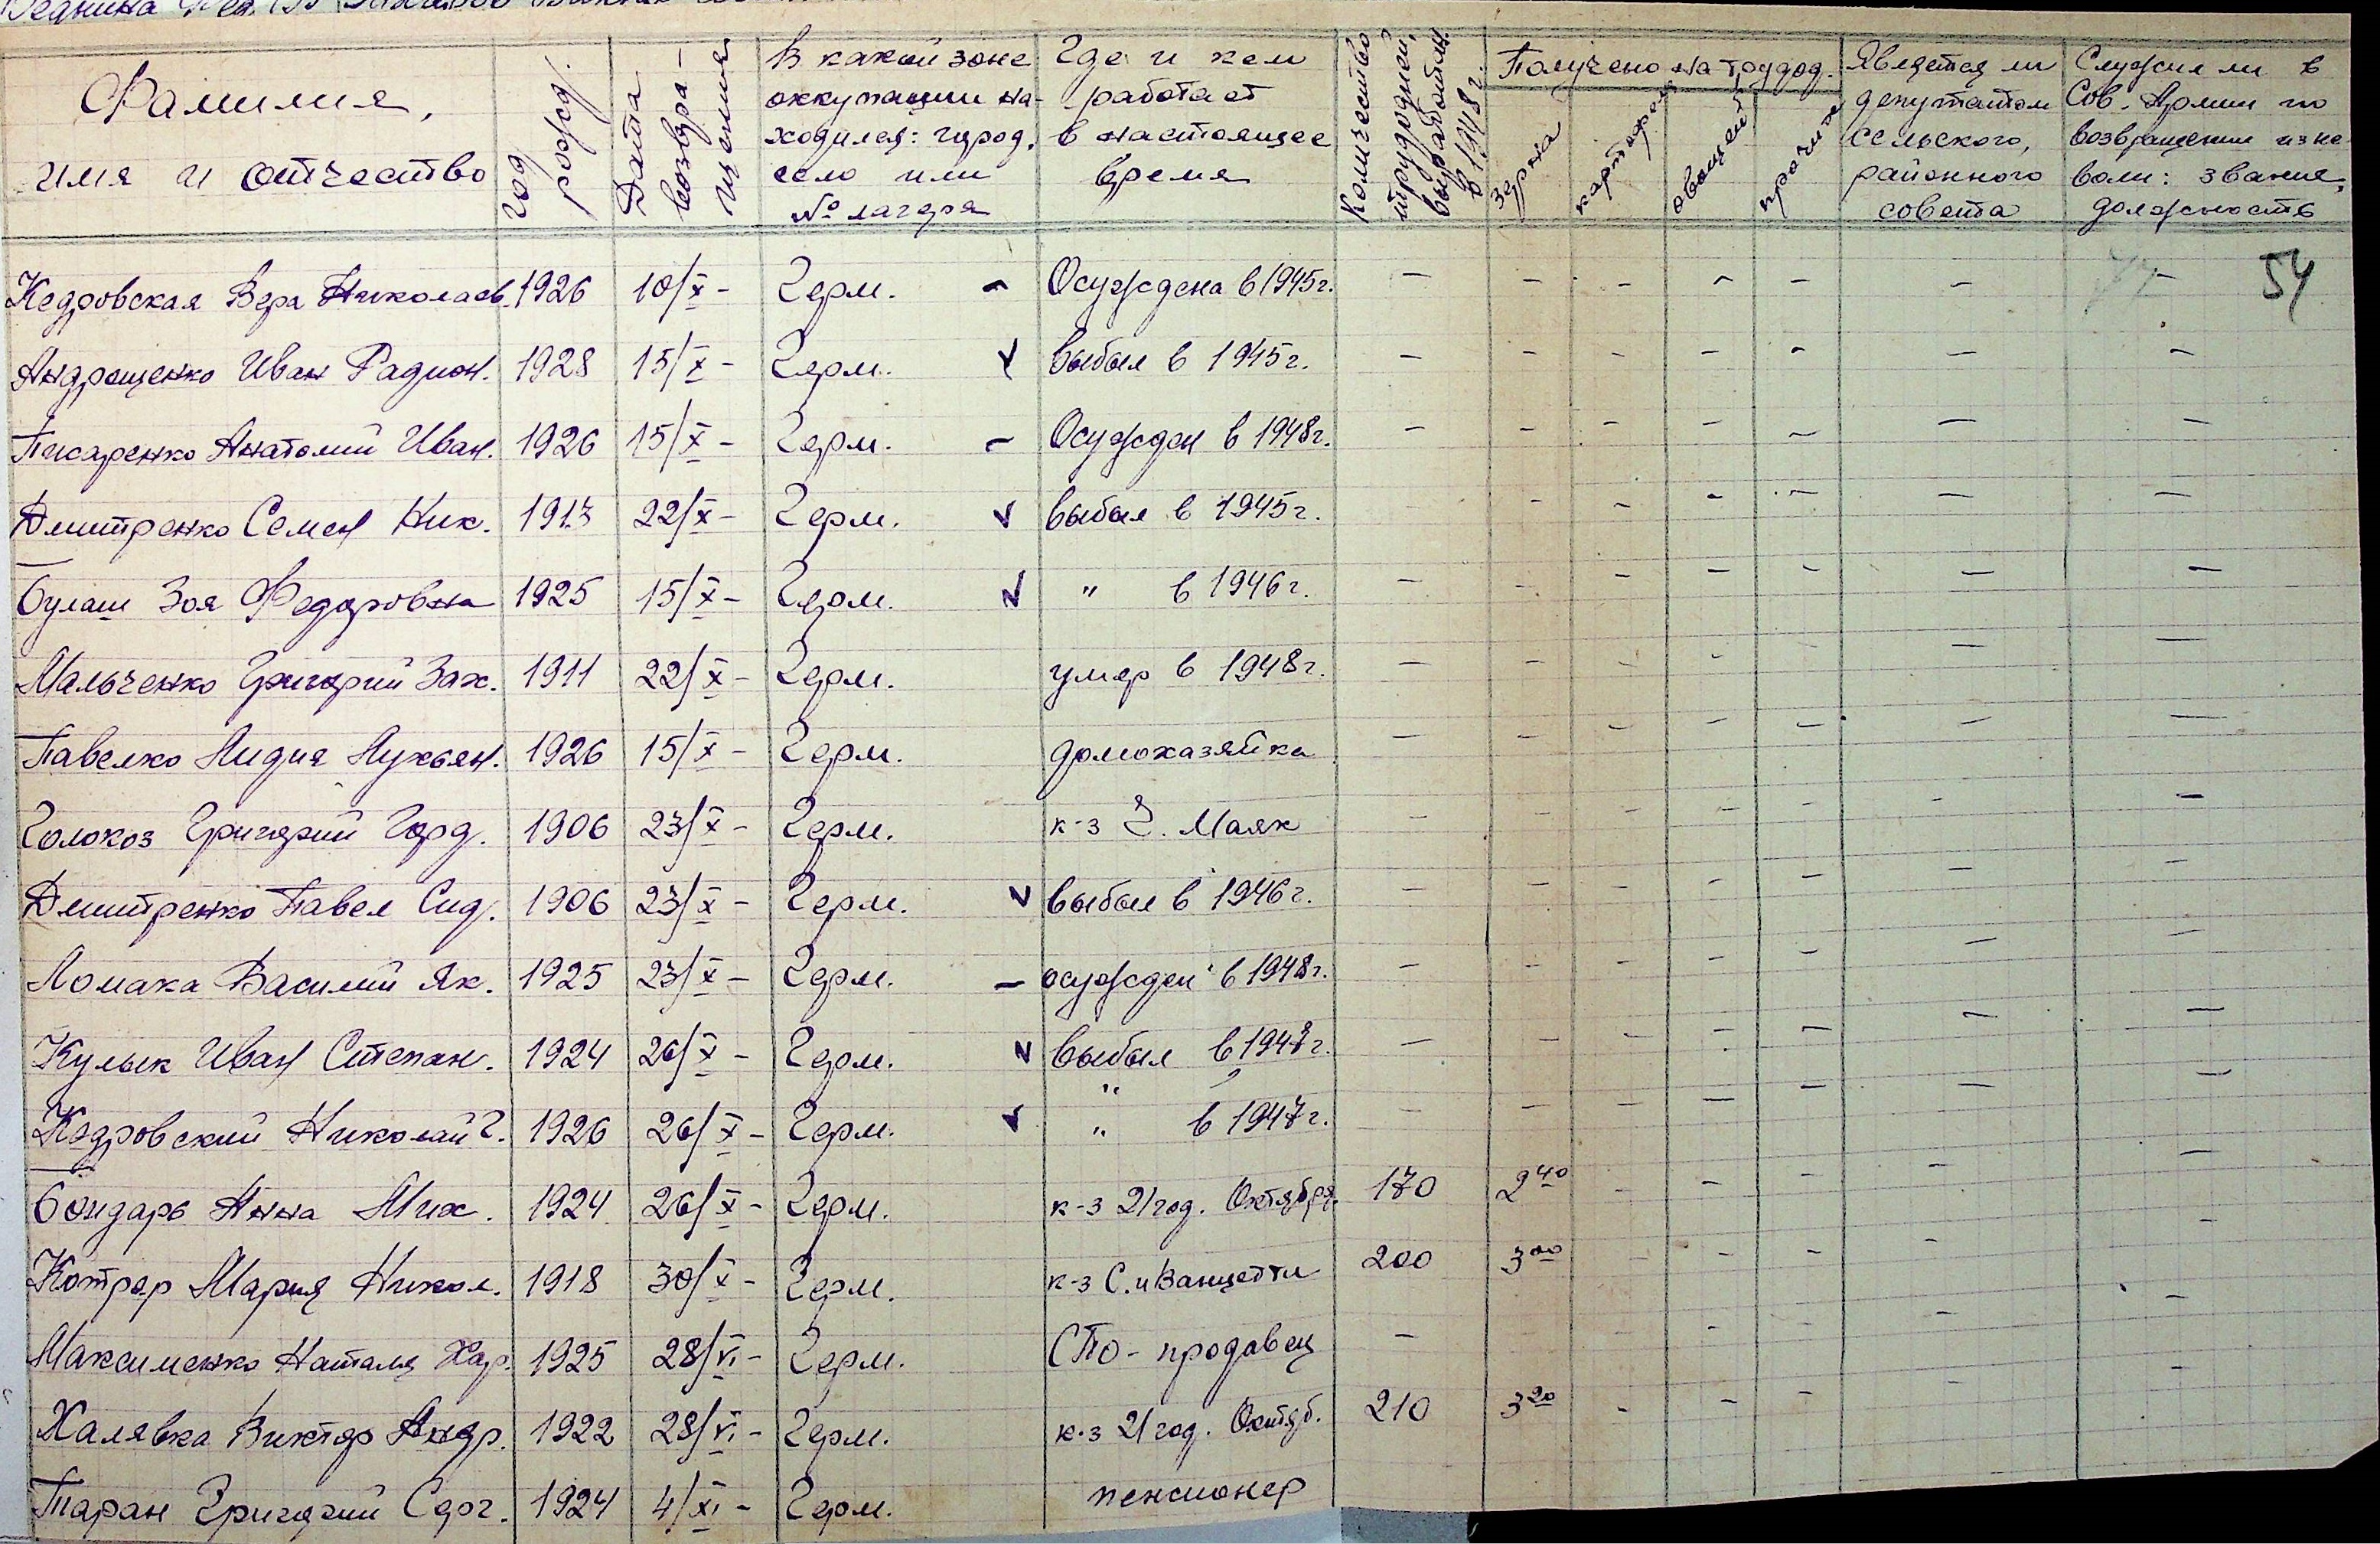 Фамилия,
имя и отчество
год рожд.
Дата возвра-
щения
В какой зоне
оккупации на-
ходился: город,
село или
№ лагеря
Где и кем
работает
в настоящее
время
Количество
трудодней,
выработан.
в 1948 г.
Получено на трудод.
зерна
картофеля
овощей
прочие
Является ли
депутатом
сельского,
районного
совета
Служил ли в
Сов. Армии по
возвращении из не-
воли: звание,
должность
54
Кедровская Вера Николаев. 1926 10/X - Герм. - Осуждена в 1945г. - - - - - - -
Андрющенко Иван Радион. 1928 15/X - Герм. v выбыл в 1945г. - - - - - - -
Писаренко Анатолий Иван. 1926 15/X - Герм. - Осужден в 1948г. - - - - - - -
Дмитренко Семен Ник. 1913 22/X - Герм. v выбыл в 1945г. - - - - - -
Булаш Зоя Федоровна 1925 15/X - Герм. v " в 1946г. - - - - - - -
Мальченко Григорий Зах. 1911 22/X - Герм. умер в 1948г. - - - - - - -
Павелко Лидия Лукьян. 1926 15/X - Герм. домохазяйка - - - - - - -
Голокоз Григорий Горд. 1906 23/X - Герм. к-з Ч. Маяк - - - - - - -
Дмитренко Павел Сид. 1906 23/X - Герм. v выбыл в 1946г. - - - - - - -
Ломака Василий Як. 1925 23/X - Герм. - осужден в 1948г. - - - - - - -
Кулык Иван Степан. 1924 26/X - Герм. v выбыл в г. - - - - - - -
Кедровский Николай Г. 1926 26/X - Герм. v " в 1947г. - - - - - - -
Бондарь Анна Мих. 1924 26/X - Герм. к-з 21 год. Октября. 170 2 40 - - - - -
Котряр Мария Никол. 1918 30/X - Герм. к-з С. и Ванцетти 200 3 00 - - - - -
Максименко Наталя Хар. 1925 28/VI - Герм. СПО - продавец - - - - -
Халявка Виктор Андр. 1922 28/VI - Герм. к-з 21 год. Октяб. 210 3 20 - - - - -
Таран Григорий Серг. 1924 4/XI - Герм. пенсионер